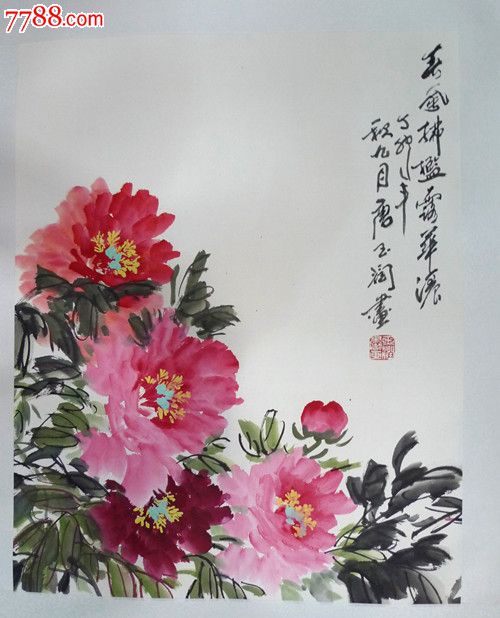 7788.com
春風拂檻露華濃
丁卯年
秋九月唐玉润畫